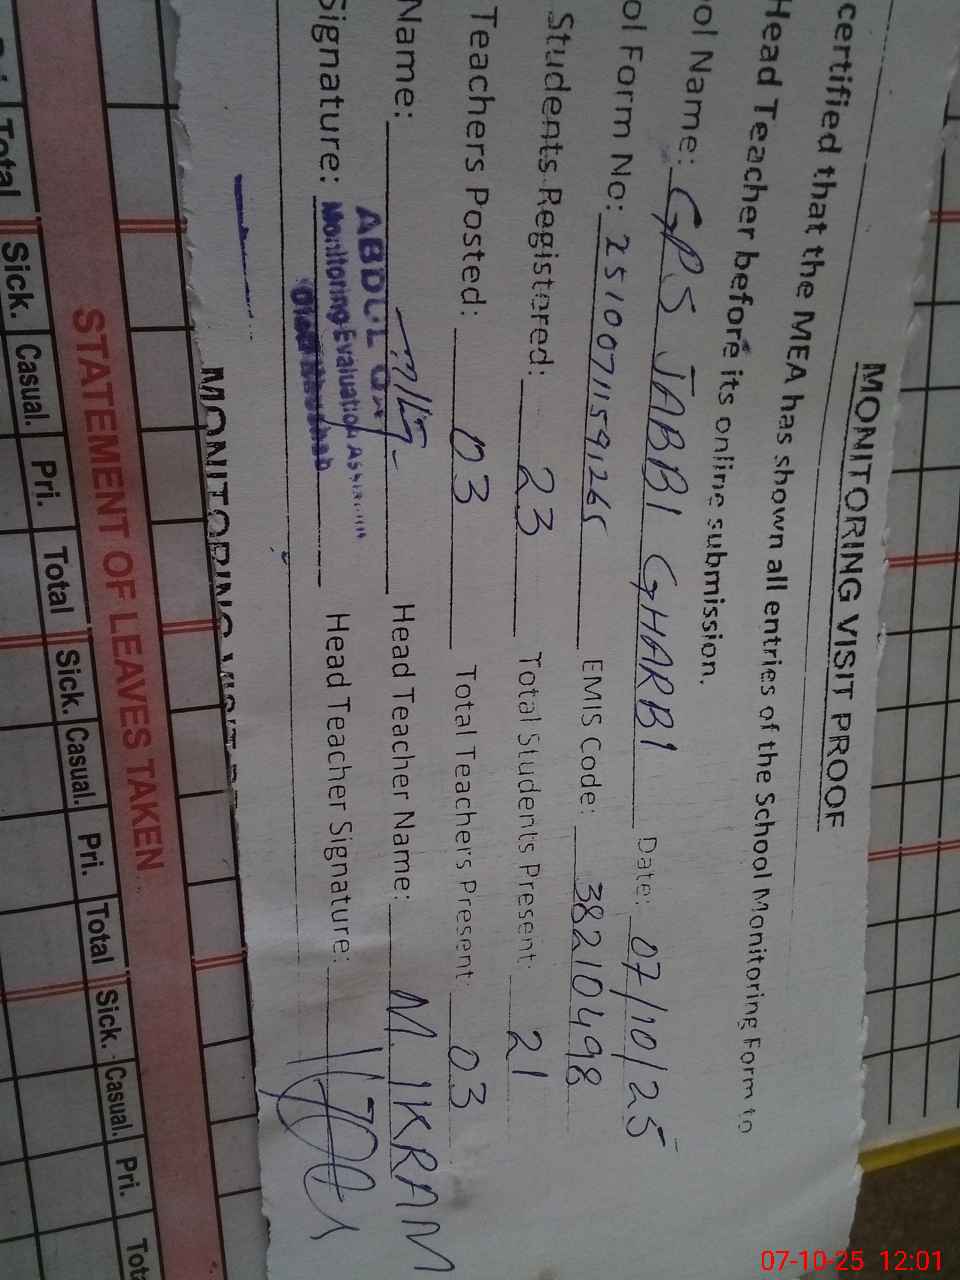 MONITORING VISIT PROOF
certified that the MEA has shown all entries of the School Monitoring Form to
Head Teacher before its online submission.
ol Name: GPS JABBI GHARBI Date: 07/10/25
ol Form No: 2510071159126 EMIS Code: 38210498
Students Registered: 23 Total Students Present: 21
Teachers Posted: 03 Total Teachers Present: 03
Name: Head Teacher Name: M. IKRAM
ABDUL
Signature: Monitoring Evaluation Head Teacher Signature:
MONITORING VISIT
STATEMENT OF LEAVES TAKEN
Total Sick. Casual. Pri. Total Sick. Casual. Pri. Total Sick. Casual. Pri. Tot
07-10-25 12:01